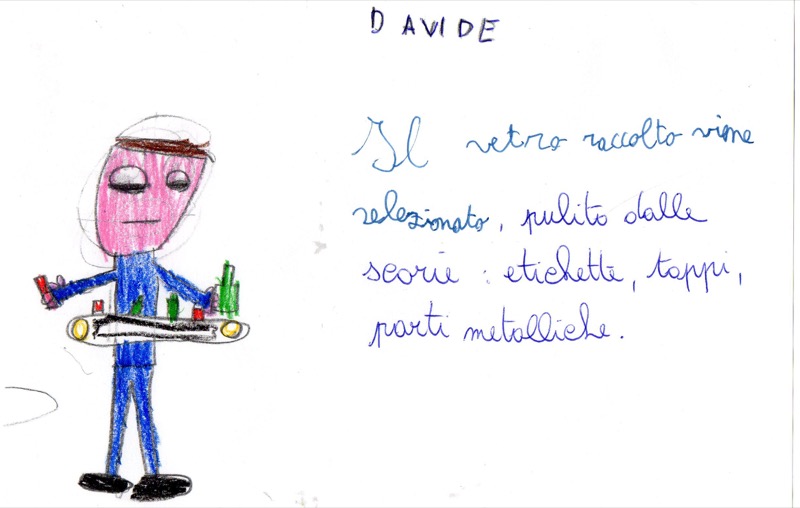 DAVIDE
Il vetro raccolto vine
selezionato, pulito dalle
scorie : etichette, tappi,
parti metalliche.